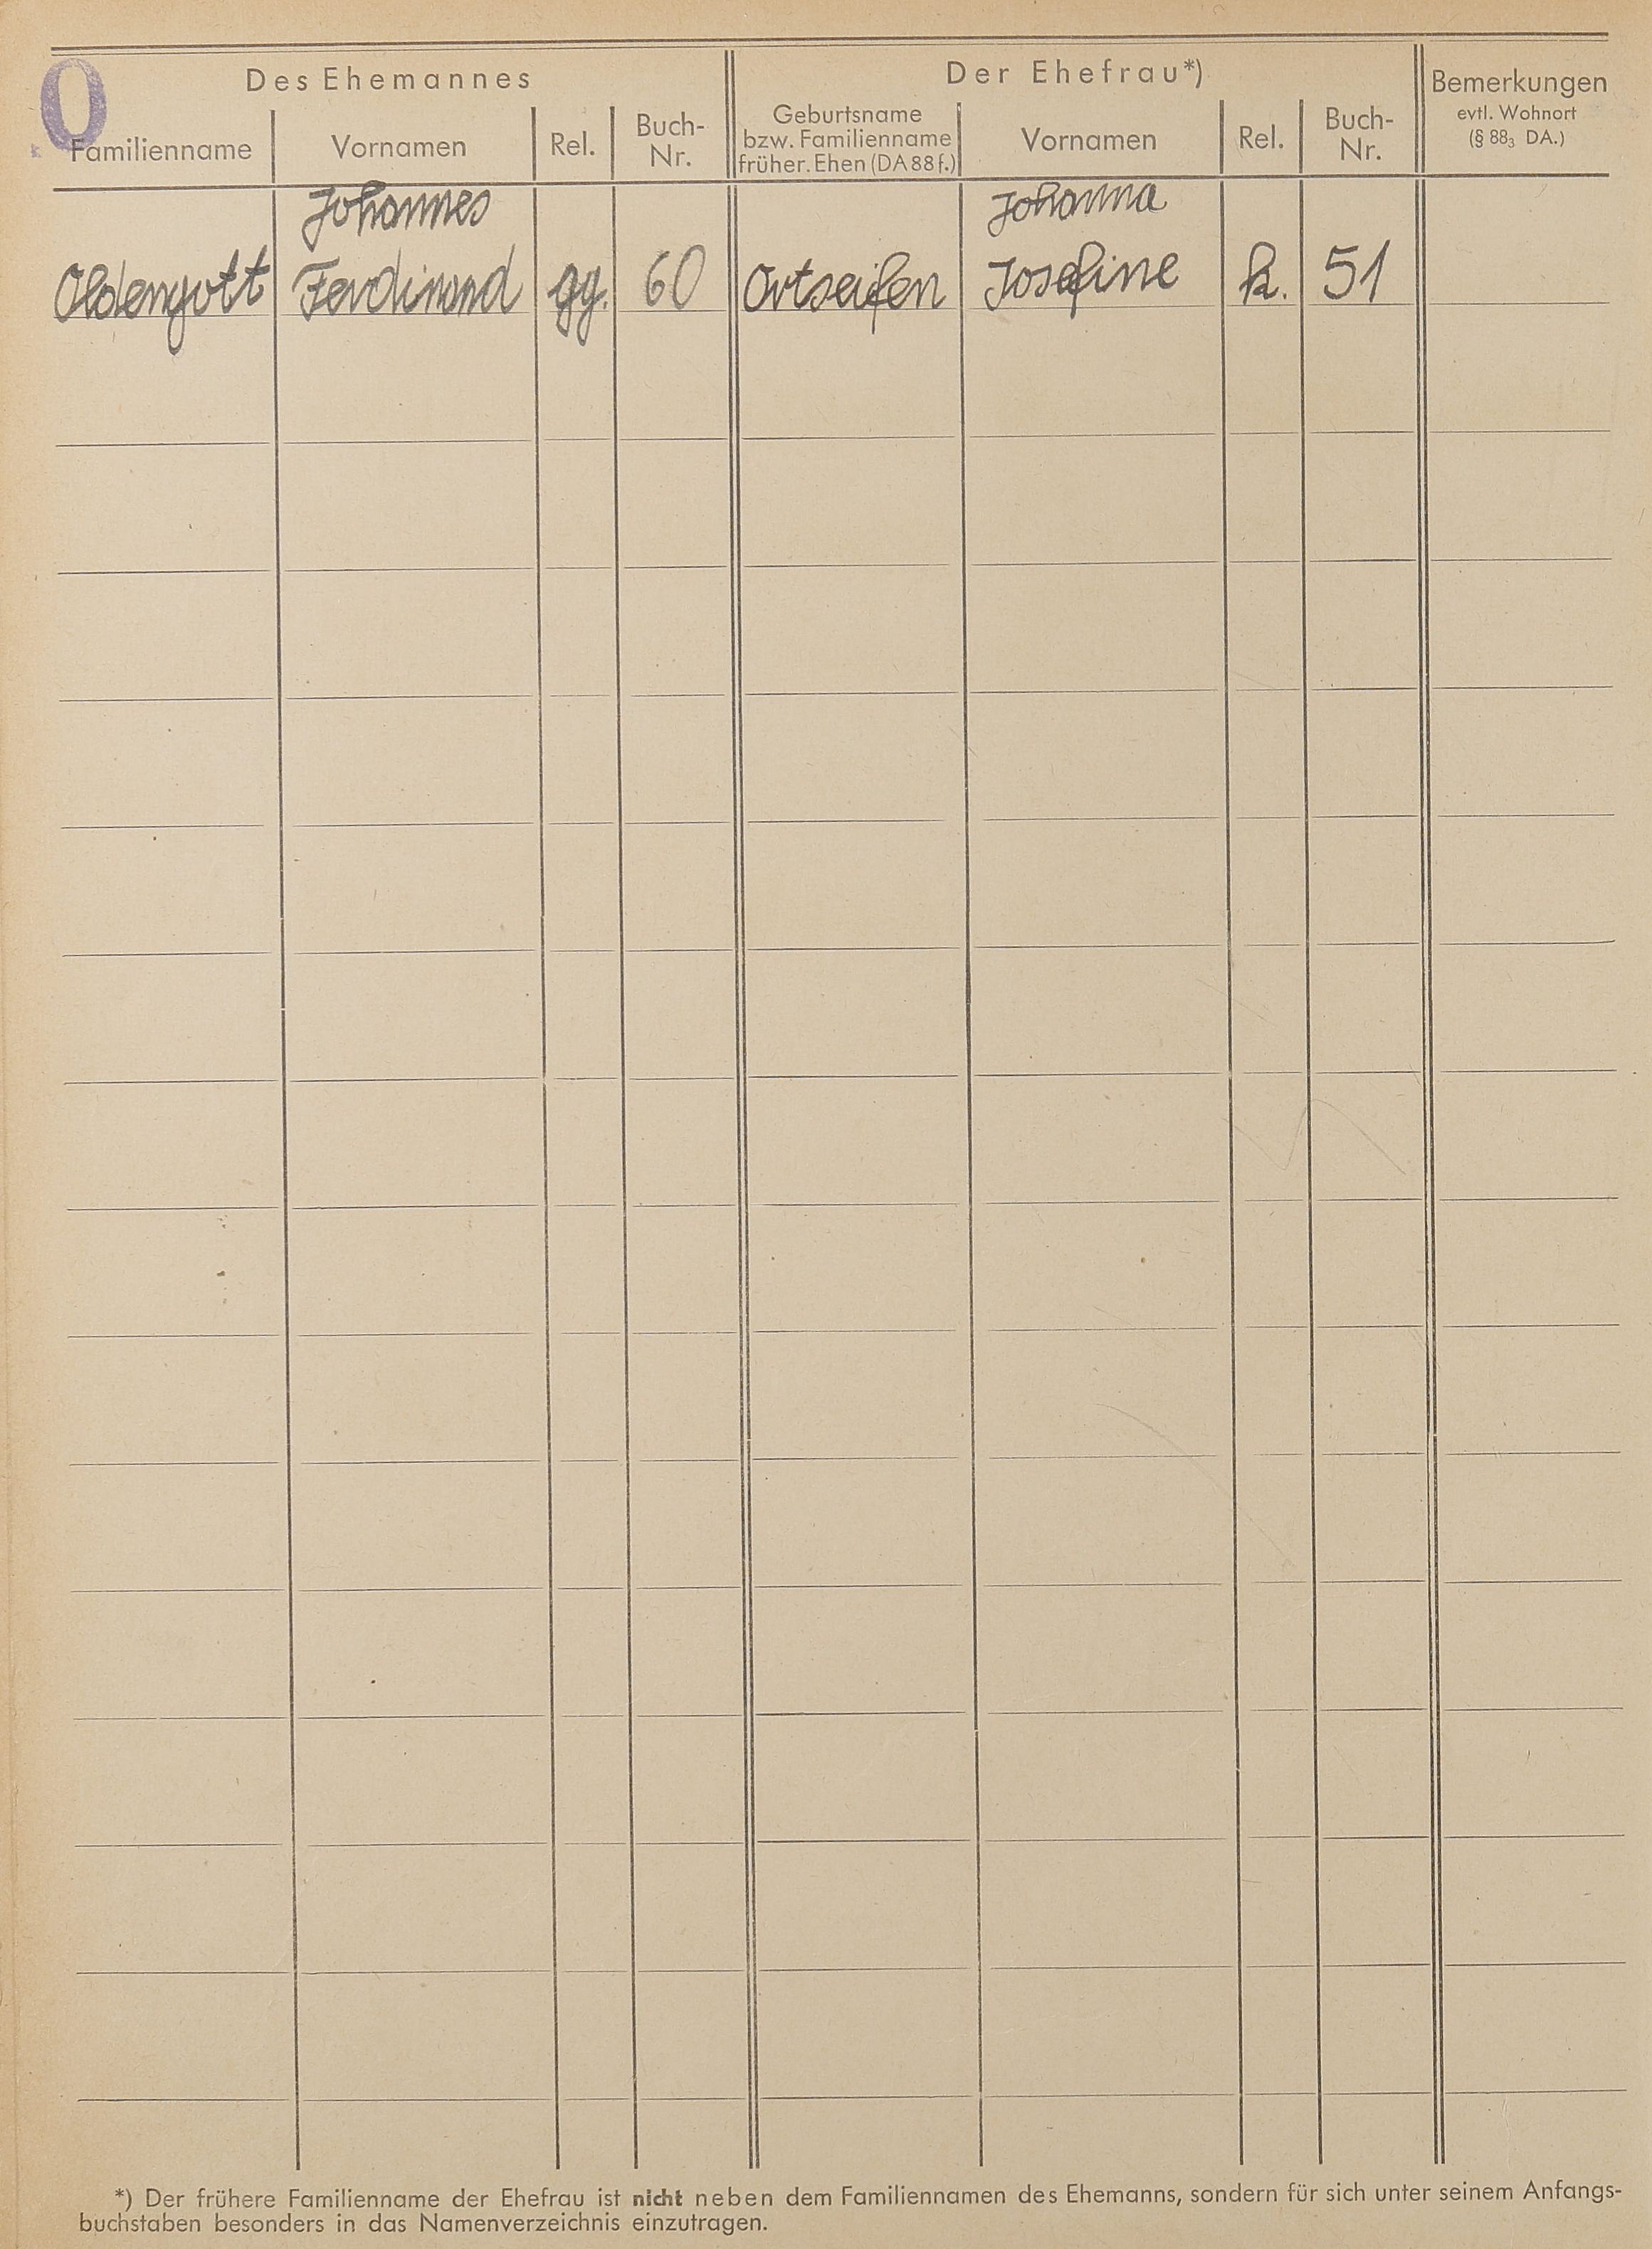 O
Des Ehemannes
Der Ehefrau*)
Bemerkungen
evtl. Wohnort
(§ 88₃ DA.)
Familienname
Vornamen
Rel.
Buch-
Nr.
Geburtsname
bzw. Familienname
früher. Ehen (DA 88 f.)
Vornamen
Rel.
Buch-
Nr.
Johannes
Johanna
Oldengott Ferdinand gg. 60 Ortseifen Josefine k. 51
*) Der frühere Familienname der Ehefrau ist nicht neben dem Familiennamen des Ehemanns, sondern für sich unter seinem Anfangs-
buchstaben besonders in das Namenverzeichnis einzutragen.